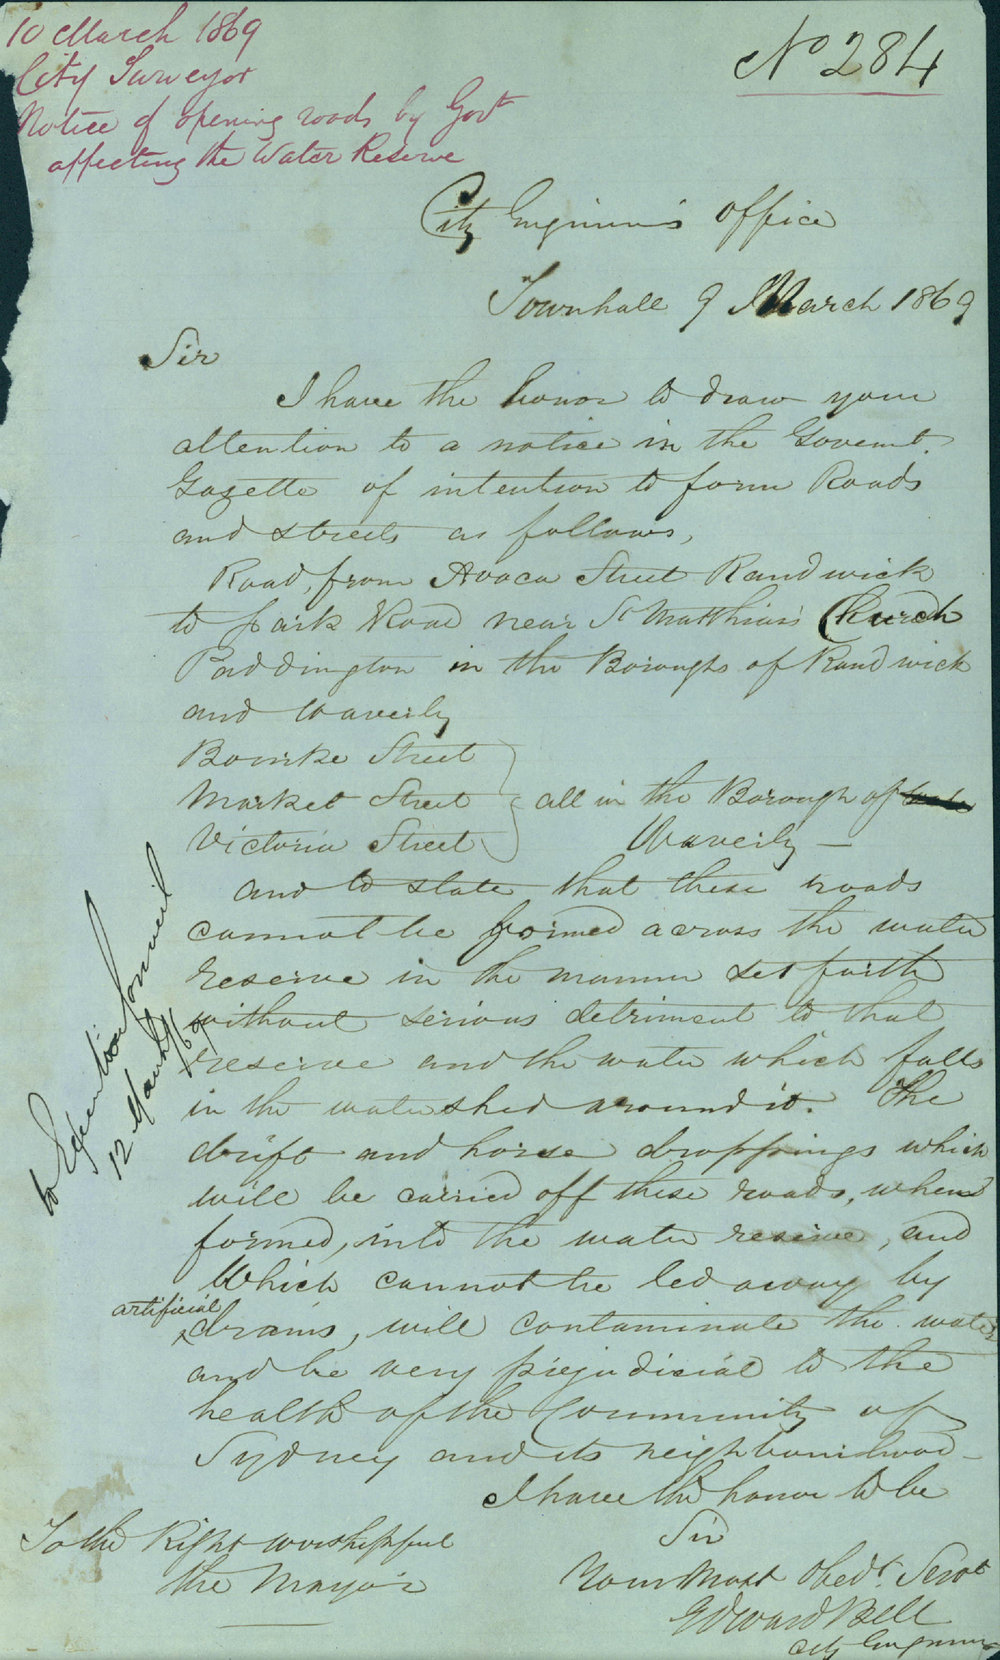 10 March 1869
City Surveyor
Notice of opening roads by Govt
affecting the Water Reserve
No 284
City Engineer's Office
Townhall 9 March 1869
Sir
I have the honor to draw your
attention to a notice in the Govermt.
Gazette of intention to form Roads
and streets as follows,
Road, from Avoca Street Randwick
to Park Road near St Matthias Church
Paddington in the Boroughs of Randwick
and Waverly
Bourke Street
Market Street } all in the Borough of
Victoria Street Waverly —
and to state that these roads
cannot be formed across the water
reserve in the manner set forth
without serious detriment to that
reserve and the water which falls
in the watershed around it. The
drift and horse droppings which
will be carried off these roads, when
formed, into the water reserve, and
which cannot be led away by
artificial
drains, will contaminate the water
and be very prejudicial to the
health of the Community of
Sydney and its neighbourhood -
I have the honor to be
Sir
Your Most Obedt. Servt
Edward Bell
City Engineer
To the Right Worshipful
the Mayor
to Council
12 March /69